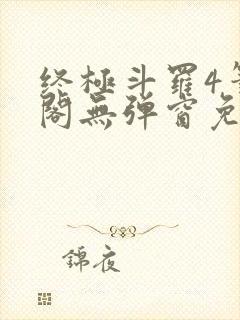 终極斗羅4
閣無弹窗免
錦夜